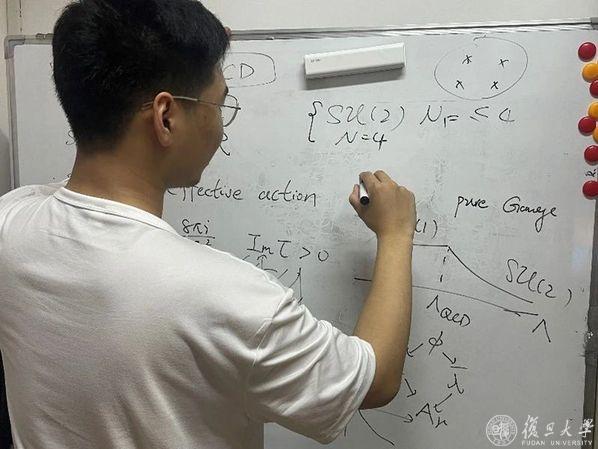 CD
SU(2) N_F ≤ 4
N=4
effective action
pure Gauge
8πi
Im τ > 0
(1)
SU(2)
Λ_QCD
Λ
φ
λ
A
復旦大學
FUDAN UNIVERSITY